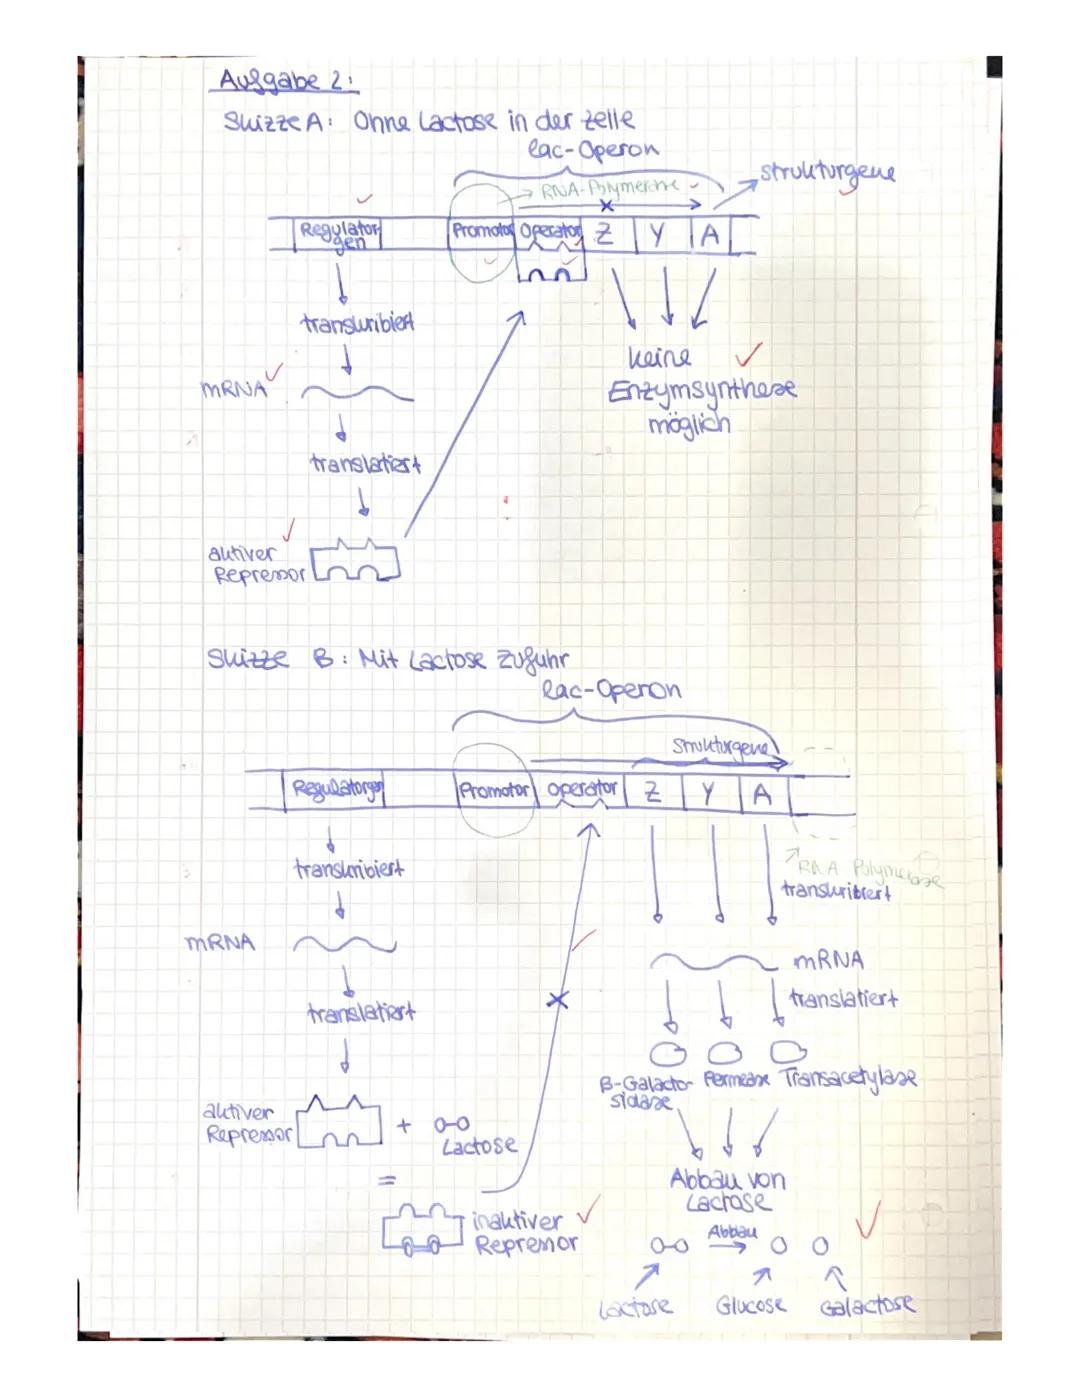 Aufgabe 2:
Skizze A: Ohne Lactose in der Zelle
lac-Operon
Strukturgene
RNA-Polymerase
Regulator
gen
Promotor
Operator
Z
Y
A
transkribiert
keine
Enzymsynthese
möglich
mRNA
translatiert
aktiver
Repressor
Skizze B: Mit Lactose Zufuhr
lac-Operon
Strukturgene
Regulatorgen
Promotor
Operator
Z
Y
A
RNA Polymerase
transkribiert
transkribiert
mRNA
mRNA
translatiert
translatiert
β-Galacto-
sidase
Permease
Transacetylase
aktiver
Repressor
+
Lactose
=
inaktiver
Repressor
Abbau von
Lactose
Abbau
Lactose
Glucose
Galactose